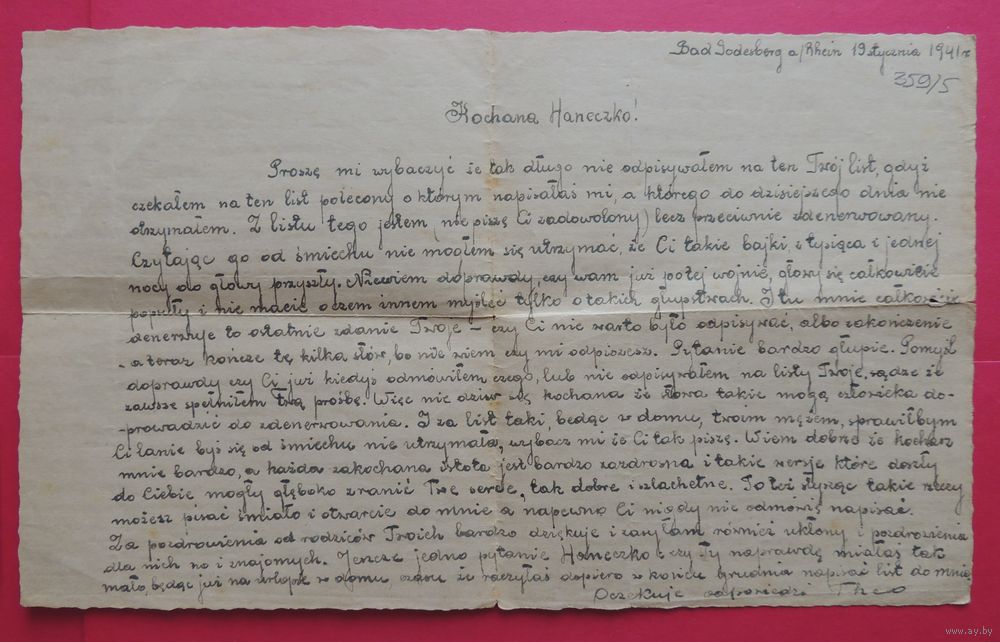 Bad Godesberg a/Rhein 19 stycznia 1941 r
359/5
Kochana Haneczko!
Proszę mi wybaczyć że tak długo nie odpisywałem na ten Twój list, gdyż
czekałem na ten list polecony o którym napisałaś mi, a którego do dzisiejszego dnia nie
otrzymałem. Z listu tego jestem (nie piszę Ci zadowolony) lecz przeciwnie zdenerwowany.
Czytając go od śmiechu nie mogłem się utrzymać, że Ci takie bajki z tysiąca i jednej
nocy do głowy przyszły. Niewiem doprawdy, czy wam już po tej wojnie, głowy się całkowicie
popsuły i nie macie o czem innem myśleć tylko o takich głupstwach. I tu mnie całkowicie
denerwuje to ostatnie zdanie Twoje - czy Ci nie warto było odpisywać, albo zakończenie
- a teraz kończę tę kilka słów, bo nie wiem czy mi odpiszesz. Pytanie bardzo głupie. Pomyśl
doprawdy czy Ci już kiedyś odmówiłem czego, lub nie odpisywałem na listy Twoje, sądzę że
zawsze spełniłem twą prośbę. Więc nie dziw się kochana że słowa takie mogą człowieka do-
-prowadzić do zdenerwowania. I za list taki, będąc w domu, twoim mężem, sprawiłbym
Ci lanie byś się od śmiechu nie utrzymała, wybacz mi że Ci tak piszę. Wiem dobrze że kochasz
mnie bardzo, a każda zakochana istota jest bardzo zazdrosna i takie wersje które doszły
do Ciebie mogły głęboko zranić Twe serce, tak dobre i szlachetne. To też słysząc takie rzeczy
możesz pisać śmiało i otwarcie do mnie a napewno Ci nigdy nie odmówię napisać.
Za pozdrowienia od rodziców Twoich bardzo dziękuję i zasyłam również ukłony i pozdrowienia
dla nich no i znajomych. Jeszcze jedno pytanie Haneczko: czy Ty naprawdę miałaś tak
mało, będąc już na urlopie w domu czasu że raczyłaś dopiero w końcu grudnia napisać list do mnie.
Oczekuję odpowiedzi Theo
www.ay.by